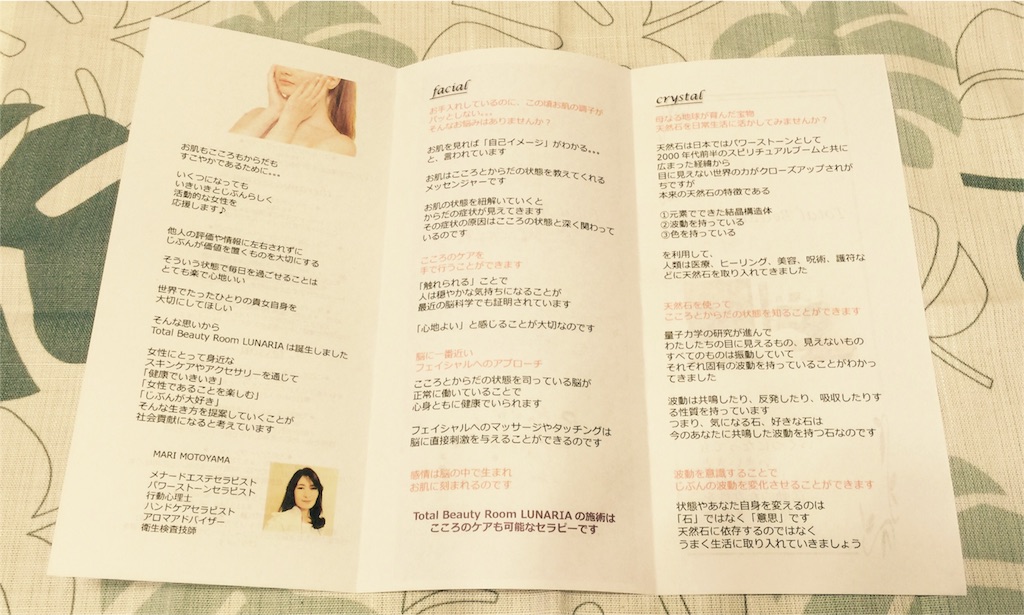 お肌もこころもからだも
すこやかであるために｡｡｡
いくつになっても
いきいきとじぶんらしく
活動的な女性を
応援します♪
他人の評価や情報に左右されずに
じぶんが価値を置くものを大切にする
そういう状態で毎日を過ごせることは
とても楽で心地いい
世界でたったひとりの貴女自身を
大切にしてほしい
そんな思いから
Total Beauty Room LUNARIA は誕生しました
女性にとって身近な
スキンケアやアクセサリーを通じて
「健康でいきいき」
「女性であることを楽しむ」
「じぶんが大好き」
そんな生き方を提案していくことが
社会貢献になると考えています
MARI MOTOYAMA
メナードエステセラピスト
パワーストーンセラピスト
行動心理士
ハンドケアセラピスト
アロマアドバイザー
衛生検査技師
facial
お手入れしているのに、この頃お肌の調子が
パッとしない｡｡｡
そんなお悩みはありませんか？
お肌を見れば「自己イメージ」がわかる｡｡｡
と、言われています
お肌はこころとからだの状態を教えてくれる
メッセンジャーです
お肌の状態を紐解いていくと
からだの症状が見えてきます
その症状の原因はこころの状態と深く関わって
いるのです
こころのケアを
手で行うことができます
「触れられる」ことで
人は穏やかな気持ちになることが
最近の脳科学でも証明されています
「心地よい」と感じることが大切なのです
脳に一番近い
フェイシャルへのアプローチ
こころとからだの状態を司っている脳が
正常に働いていることで
心身ともに健康でいられます
フェイシャルへのマッサージやタッチングは
脳に直接刺激を与えることができるのです
感情は脳の中で生まれ
お肌に刻まれるのです
Total Beauty Room LUNARIA の施術は
こころのケアも可能なセラピーです
crystal
母なる地球が育んだ宝物
天然石を日常生活に活かしてみませんか？
天然石は日本ではパワーストーンとして
2000 年代前半のスピリチュアルブームと共に
広まった経緯から
目に見えない世界の力がクローズアップされが
ちですが
本来の天然石の特徴である
①元素でできた結晶構造体
②波動を持っている
③色を持っている
を利用して、
人類は医療、ヒーリング、美容、呪術、護符な
どに天然石を取り入れてきました
天然石を使って
こころとからだの状態を知ることができます
量子力学の研究が進んで
わたしたちの目に見えるもの、見えないもの
すべてのものは振動していて
それぞれ固有の波動を持っていることがわかっ
てきました
波動は共鳴したり、反発したり、吸収したりす
る性質を持っています
つまり、気になる石、好きな石は
今のあなたに共鳴した波動を持つ石なのです
波動を意識することで
じぶんの波動を変化させることができます
状態やあなた自身を変えるのは
「石」ではなく「意思」です
天然石に依存するのではなく
うまく生活に取り入れていきましょう